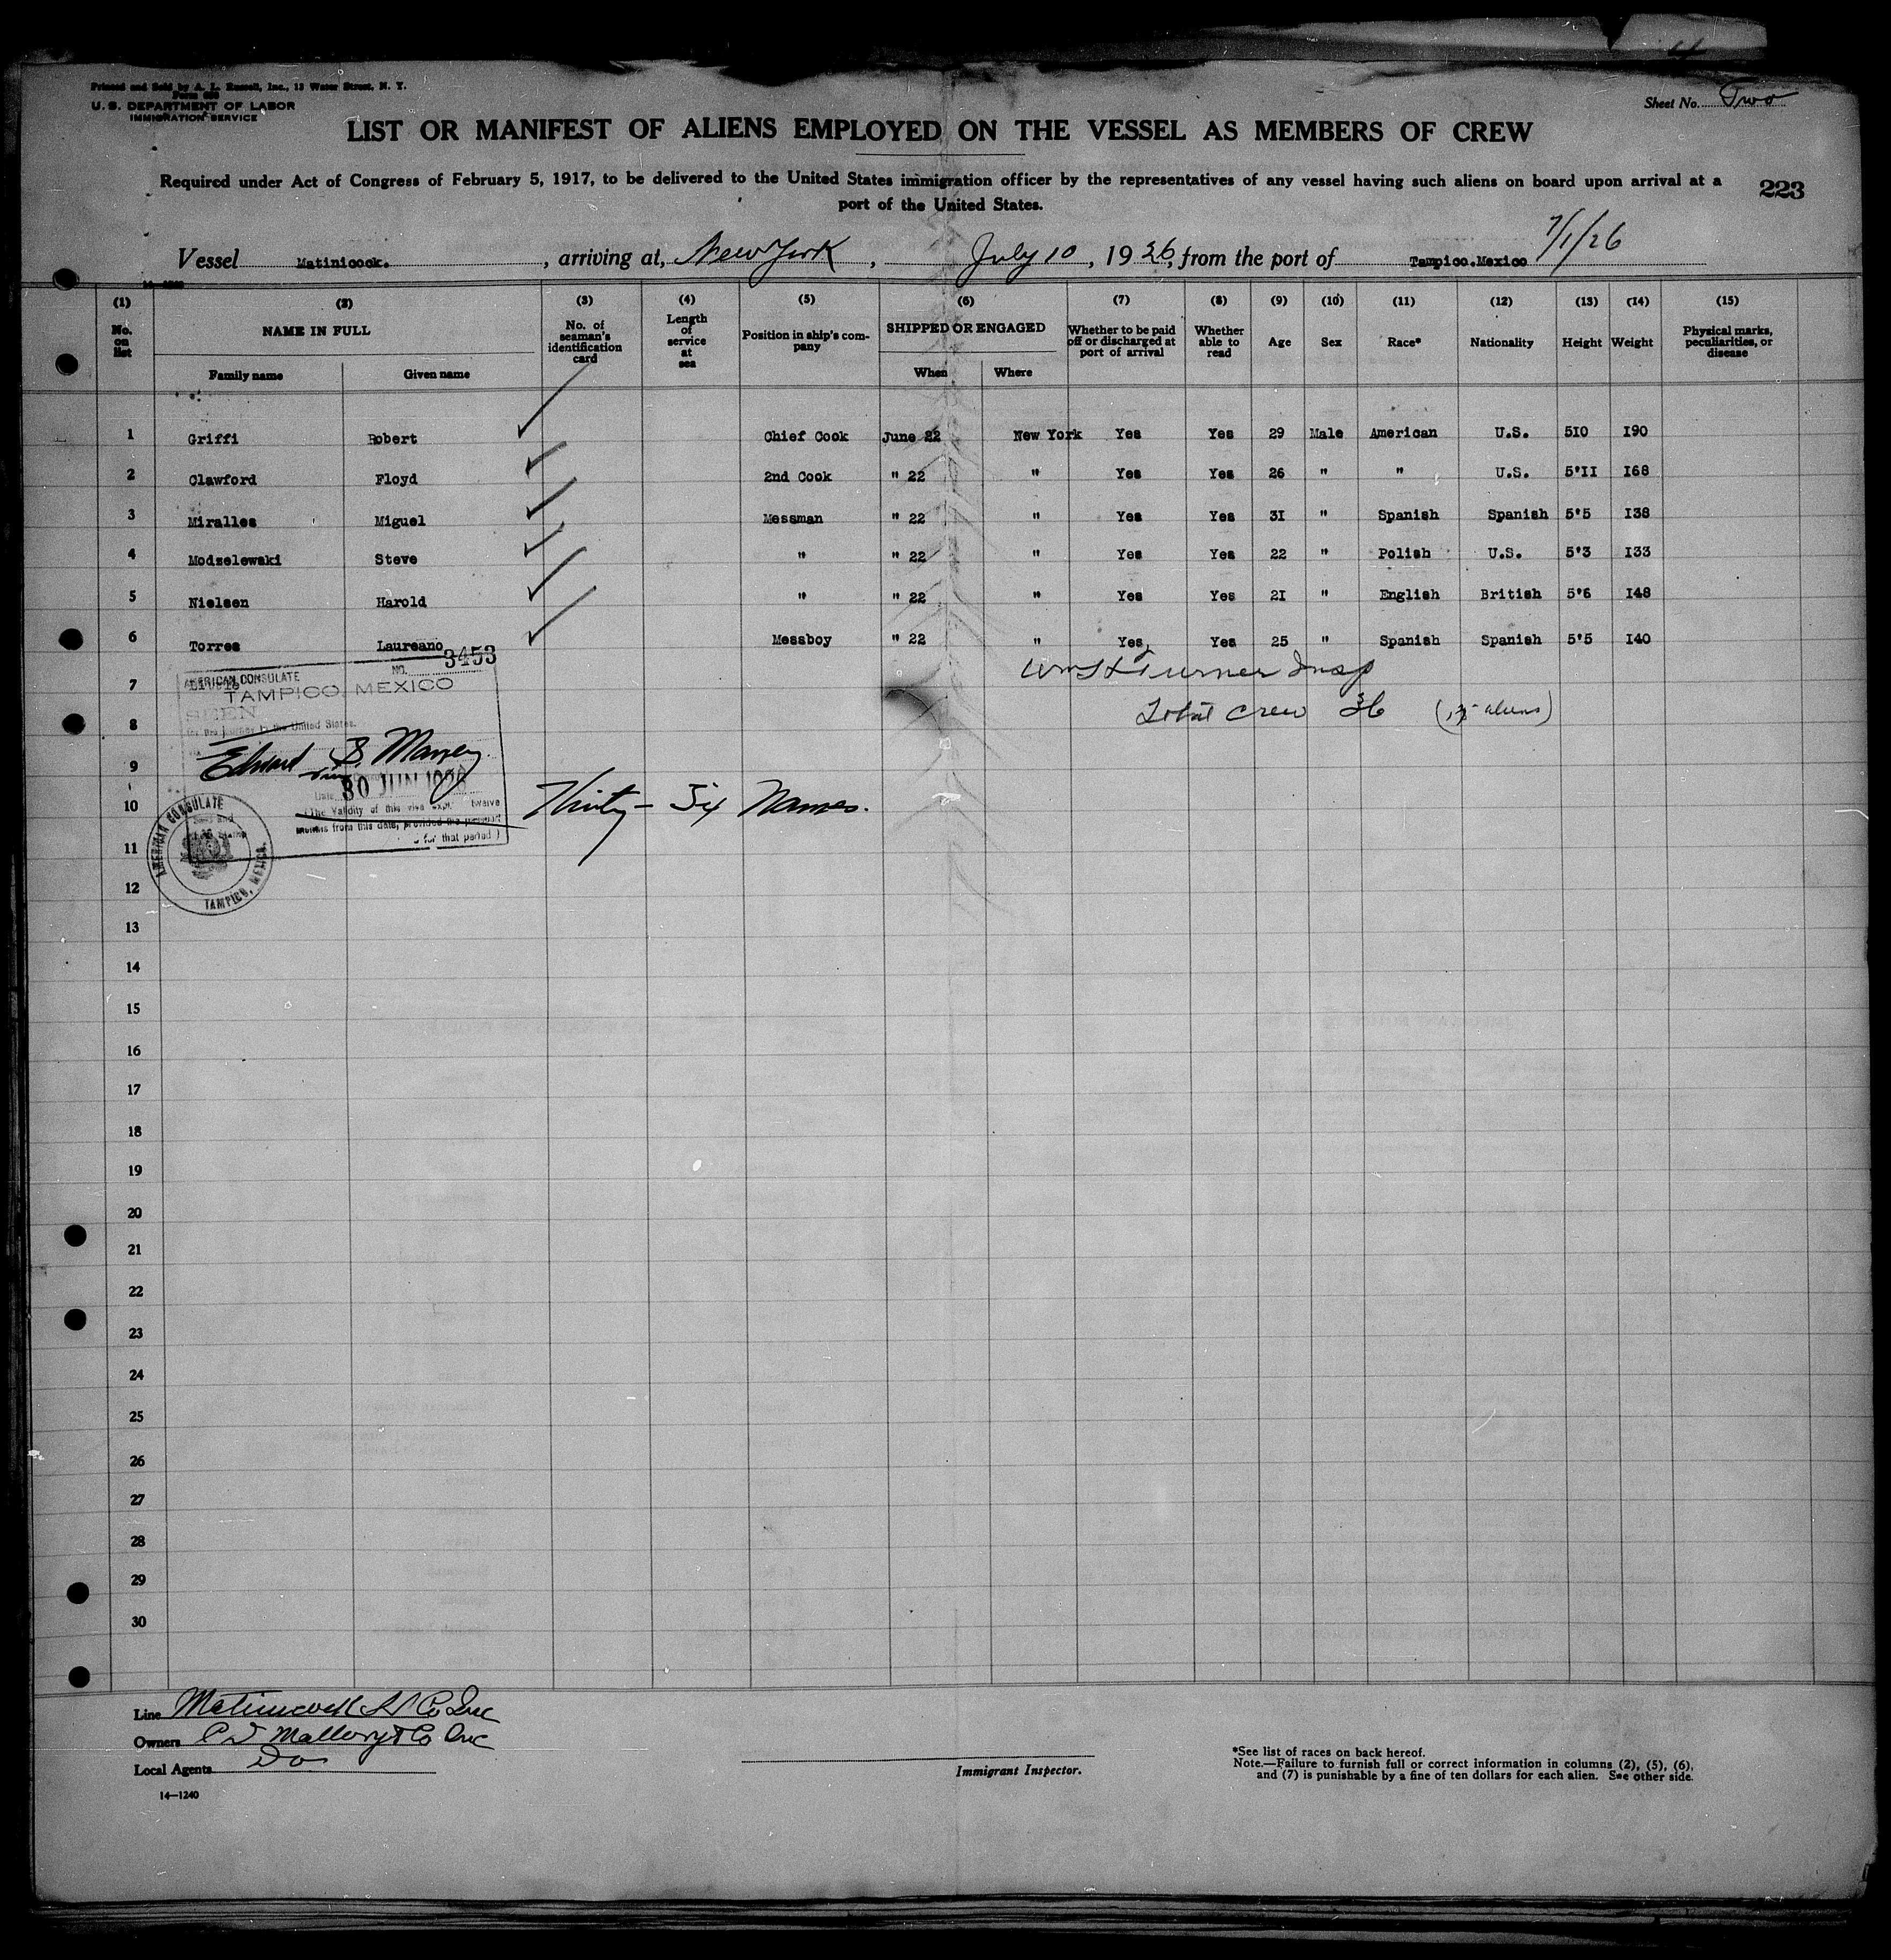 Printed and Sold by A. L. Russell, Inc., 13 Water Street, N. Y.
U. S. DEPARTMENT OF LABOR
IMMIGRATION SERVICE
Sheet No. Two
LIST OR MANIFEST OF ALIENS EMPLOYED ON THE VESSEL AS MEMBERS OF CREW
Required under Act of Congress of February 5, 1917, to be delivered to the United States immigration officer by the representatives of any vessel having such aliens on board upon arrival at a
port of the United States.
223
7/1/26
Vessel Matinicock. , arriving at, New York , July 10 , 1926, from the port of Tampico.Mexico
(1) (2) (3) (4) (5) (6) (7) (8) (9) (10) (11) (12) (13) (14) (15)
No. on list NAME IN FULL No. of seaman's identification card Length of service at sea Position in ship's company SHIPPED OR ENGAGED Whether to be paid off or discharged at port of arrival Whether able to read Age Sex Race* Nationality Height Weight Physical marks, peculiarities, or disease
Family name Given name When Where
1 Griffi Robert Chief Cook June 22 New York Yes Yes 29 Male American U.S. 5I0 I90
2 Clawford Floyd 2nd Cook " 22 " Yes Yes 26 " " U.S. 5'II I68
3 Miralles Miguel Messman " 22 " Yes Yes 3I " Spanish Spanish 5'5 I38
4 Modzelewski Steve " " 22 " Yes Yes 22 " Polish U.S. 5'3 I33
5 Nielsen Harold " " 22 " Yes Yes 2I " English British 5'6 I48
6 Torres Laureano Messboy " 22 " Yes Yes 25 " Spanish Spanish 5'5 I40
NO. 3453
AMERICAN CONSULATE
TAMPICO, MEXICO
SEEN
for the journey to the United States.
Wm H Turner Insp
Total crew 36 ( aliens)
7
8
9
Edward S. Maney
Date 30 JUN 1926
(The validity of this vise expires twelve
months from this date, provided the passport
for that period)
AMERICAN CONSULATE
TAMPICO, MEXICO.
10 Thirty-Six Names.
11
12
13
14
15
16
17
18
19
20
21
22
23
24
25
26
27
28
29
30
Line Matinicock SS Co Inc
Owners C D Mallory & Co Inc
Local Agents Do
14—1240
Immigrant Inspector.
*See list of races on back hereof.
Note.—Failure to furnish full or correct information in columns (2), (5), (6),
and (7) is punishable by a fine of ten dollars for each alien. See other side.